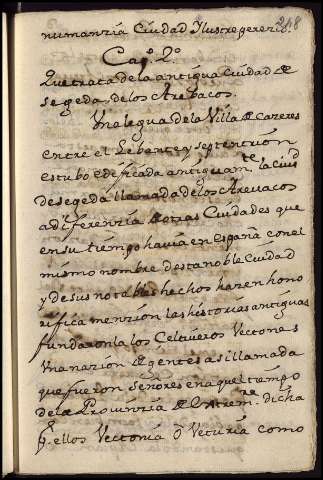 248
numanzia Ciudad Ilustre
Cap.º 2.º
Que trata de la antigua Ciudad de
Segeda, de los Arebacos.
Una legua de la Villa de Cazeres
entre el Lebente y septentrión
estubo edificada antiguamte la ciud
de segeda llamada de los Arevacos
a diferenzia de otras Ciudades que
en su tiempo havia en España con el
mismo nombre desta noble Ciudad
y de sus notables hechos hazen hono
rifica menzión las historias antiguas
fundaronla los Celtiveros Vectones
Una nazión de gentes asi llamada
que fueron señores en aquel tiempo
de la Provinzia de Estremra dicha
p.r ellos Vectonia ó Veturia como